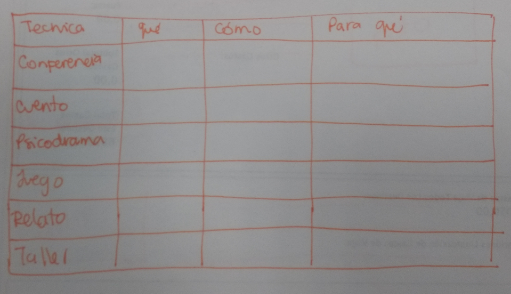 Tecnica qué Cómo Para qué
Conferencia
Cuento
Psicodrama
Juego
Relato
Taller